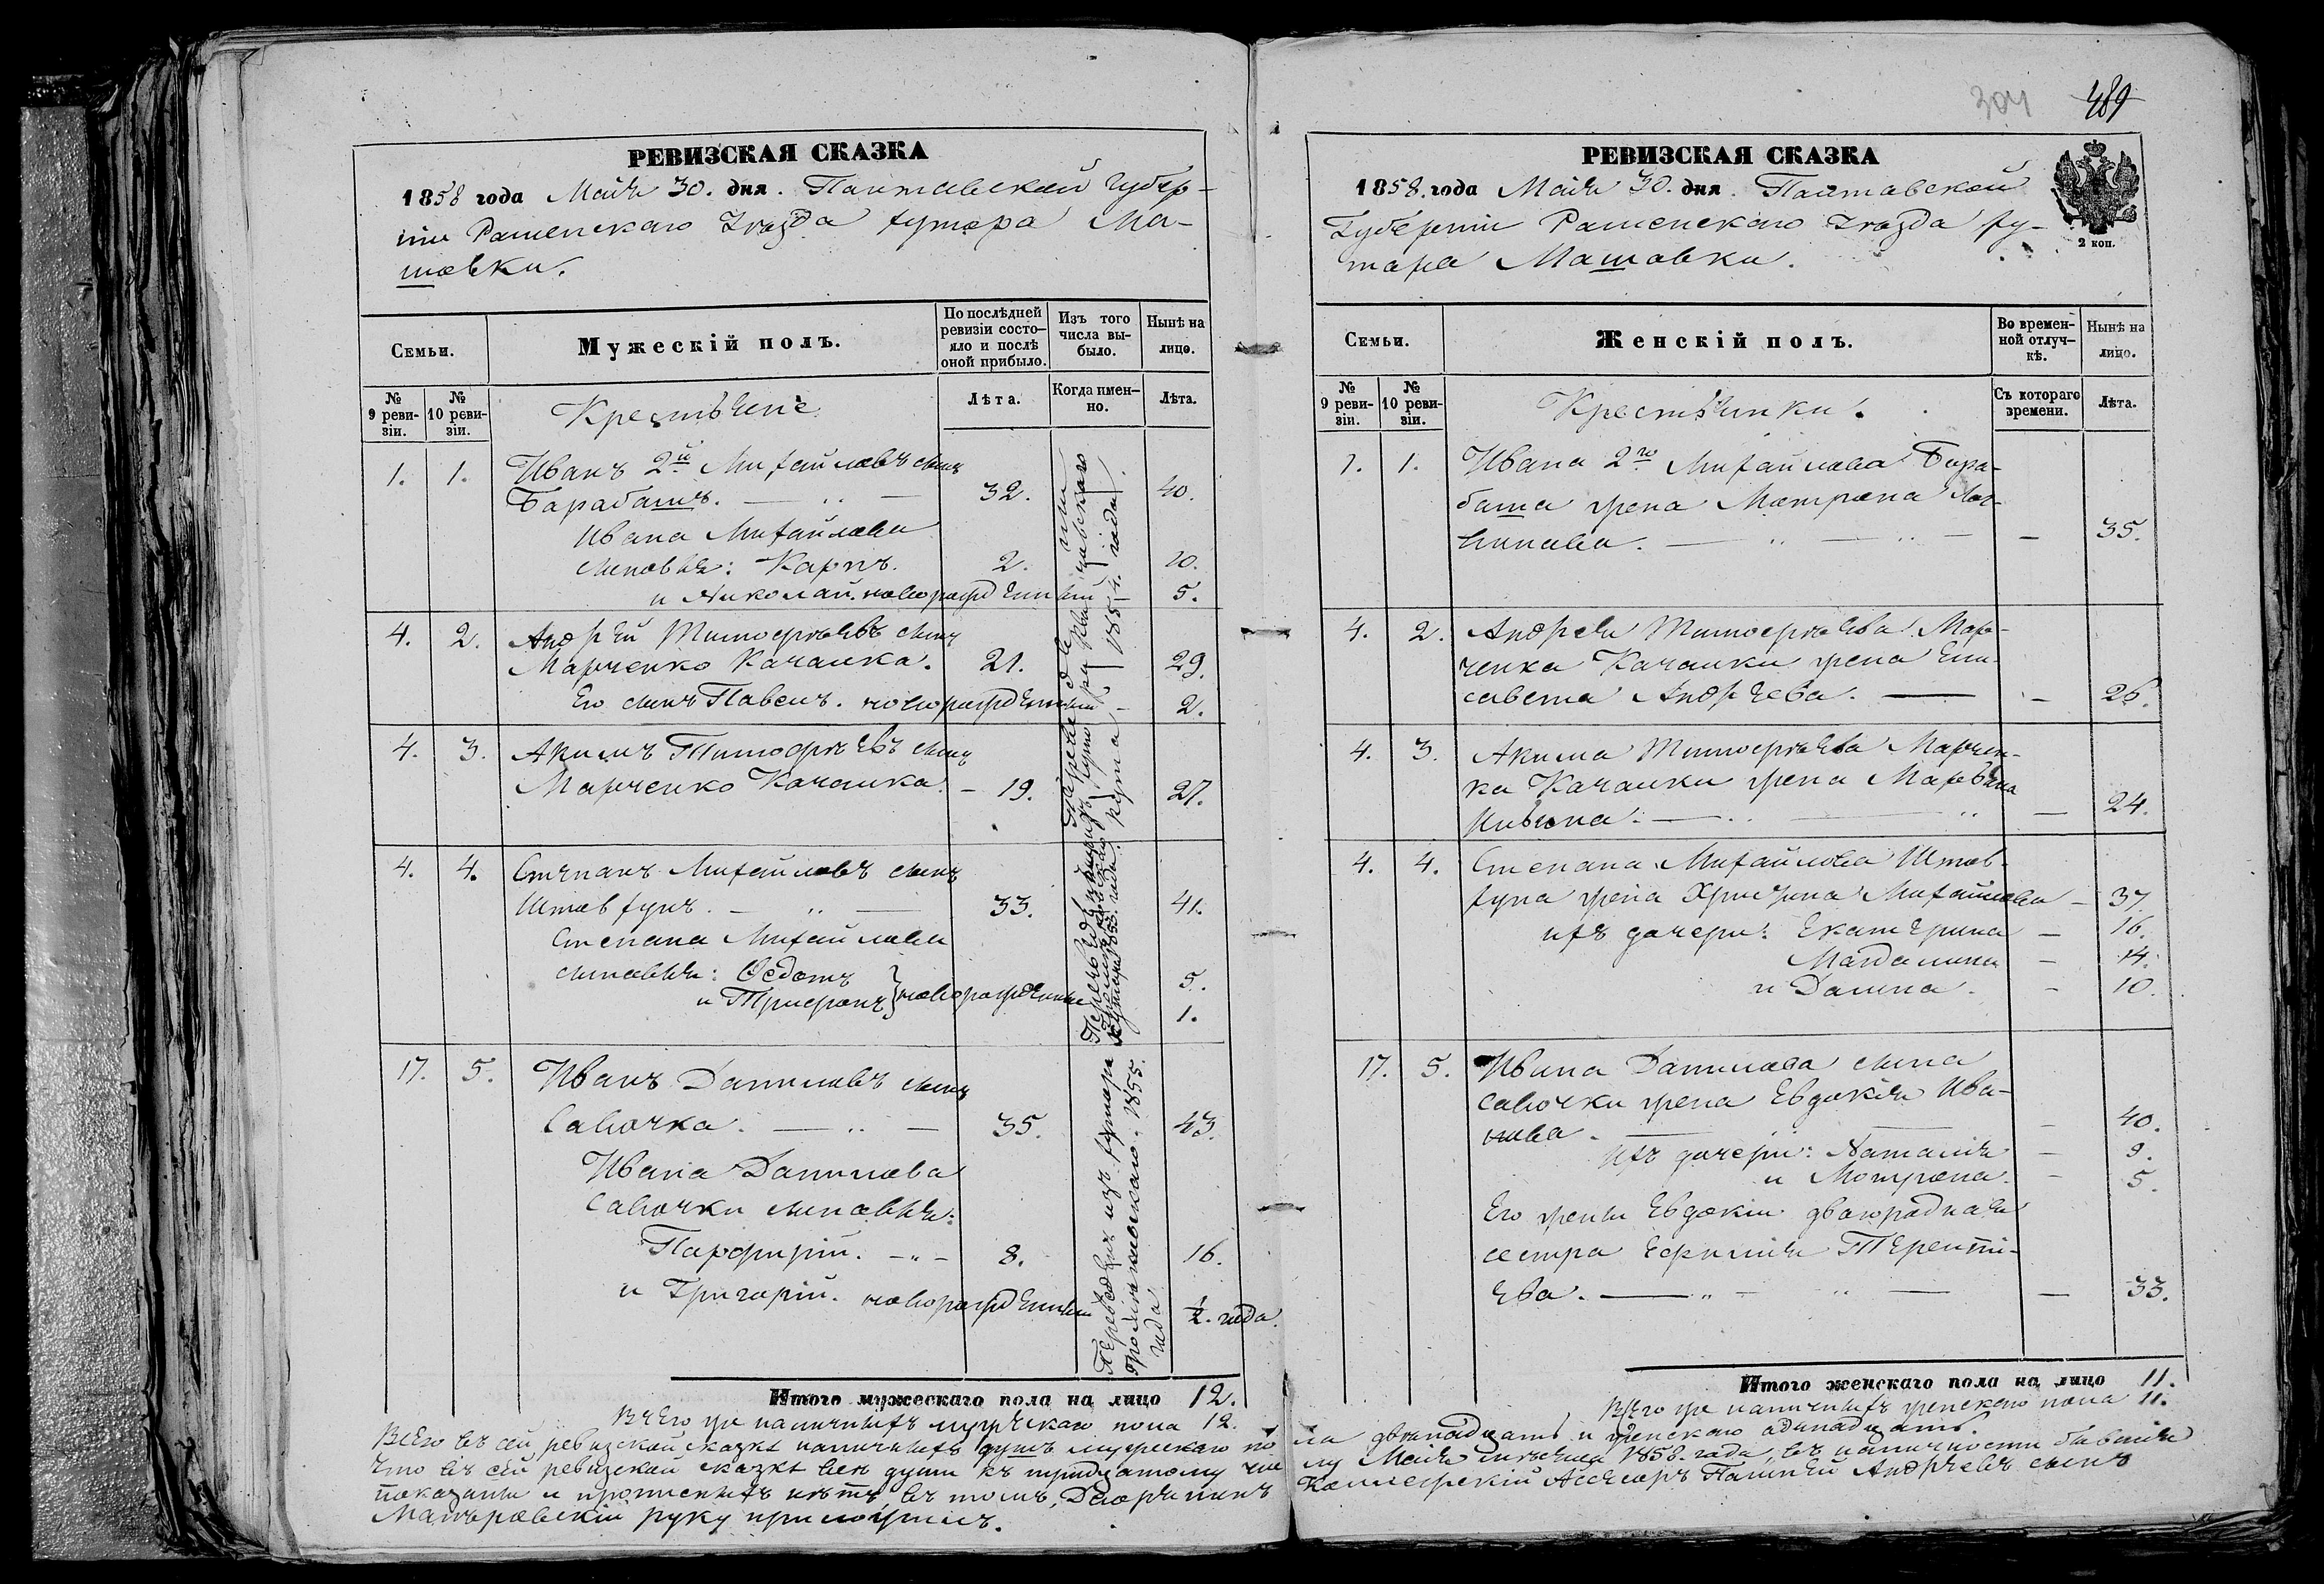 РЕВИЗСКАЯ СКАЗКА
1858 года Маія 30. дня. Полтавской губер-
ніи Роменскаго Уѣзда хутора Ма-
шовки.
Семьи.
Мужескій полъ.
По послѣдней ревизіи состо-яло и послѣ оной прибыло.
Изъ того числа вы-было.
Нынѣ на лицо.
№ 9 реви-зіи.
№ 10 реви-зіи.
Крестьяне.
Лѣта.
Когда имен-но.
Лѣта.
1. 1. Иванъ 2й Михайловъ сынъ
Барабашъ. 32. 40.
Ивана Михайлова
сыновья: Карпъ. 2. 10.
и Николай. новорожденный 5.
4. 2. Андрей Тимофѣевъ сынъ
Марченко Качалка. 21. 29.
Его сынъ Павелъ. новорожденный 2.
4. 3. Акимъ Тимофѣевъ сынъ
Марченко Качалка. 19. 27.
4. 4. Степанъ Михайловъ сынъ
Штовхунъ. 33. 41.
Степана Михайлова
сыновья: Ѳедотъ 5.
и Трифонъ } новорожденные 1.
17. 5. Иванъ Даниловъ сынъ
Савочка. 35. 43.
Ивана Данилова
Савочки сыновья:
Парфирій. 8. 16.
и Григорій. новорожденный ½ года.
Переведенъ изъ хутора
Громаковскаго. 1855.
года
Итого мужескаго пола на лицо 12.
Всего же наличныхъ мужескаго пола 12.
РЕВИЗСКАЯ СКАЗКА
304 489
2 коп.
1858. года Маія 30. дня. Полтавской
Губерніи Роменскаго Уѣзда ху-
тора Машовки.
Семьи.
Женскій полъ.
Во времен-ной отлуч-кѣ.
Нынѣ на лицо.
№ 9 реви-зіи.
№ 10 реви-зіи.
Крестьянки.
Съ котораго времени.
Лѣта.
1. 1. Ивана 2го Михайлова Бара-
баша жена Матрона Лог-
винова. 35.
4. 2. Андрея Тимофѣева Мар-
ченка Качалки жена Ели-
савета Андреева. 26.
4. 3. Акима Тимофѣева Марчен-
ка Качалки жена Марѳа
24.
4. 4. Степана Михайлова Штов-
хуна жена Христина Михайлова 37.
ихъ дочери: Екатерина 16.
Магдалина 14.
и Домна. 10.
17. 5. Ивана Данилова сына
Савочки жена Евдокія Ива-
нова. 40.
ихъ дочери: Наталія 9.
и Мотрона. 5.
Его жены Евдокіи двоюродная
сестра Ефимія Теренті-
ева. 33.
Итого женскаго пола на лицо 11.
Всего же наличныхъ женскаго пола 11.
Всего въ сей ревизской сказкѣ наличныхъ душъ мужескаго по ла двѣнадцать и женскаго одинадцать.
Что въ сей ревизской сказкѣ всѣ души къ тридцатому чис лу Маія мѣсяца 1858. года, въ наличности бывшія
показаны и прописныхъ нѣтъ, въ томъ, Дворянинъ Коллежскій Ассесоръ Андреевъ сынъ
руку приложилъ.